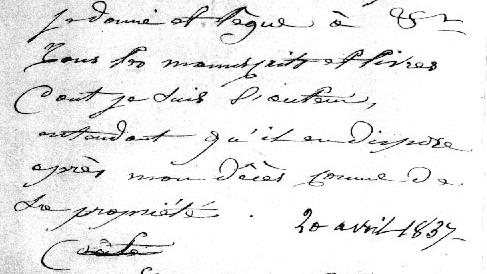 je donne et lègue à
tous les manuscrits et livres
dont je suis l'auteur,
entendant qu'il en dispose
après mon décès comme de
sa propriété. 20 avril 1837